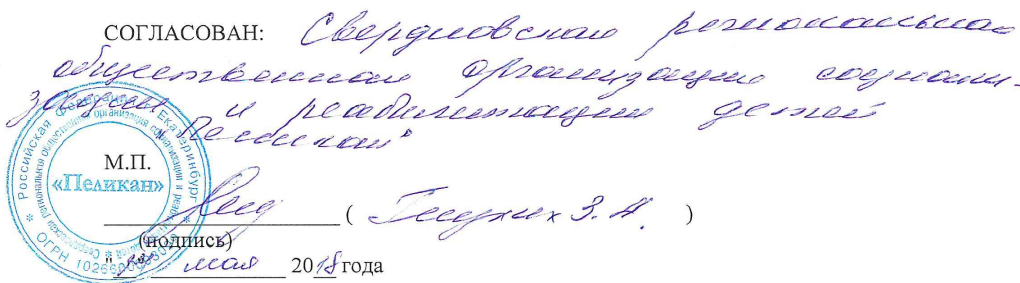 СОГЛАСОВАН: Свердловская региональная
общественная организация социали-
зации и реабилитации детей
"Пеликан"
М.П.
Российская Федерация г. Екатеринбург
«Пеликан»
ОГРН
( Глухих З. А. )
(подпись)
" " мая 2018 года